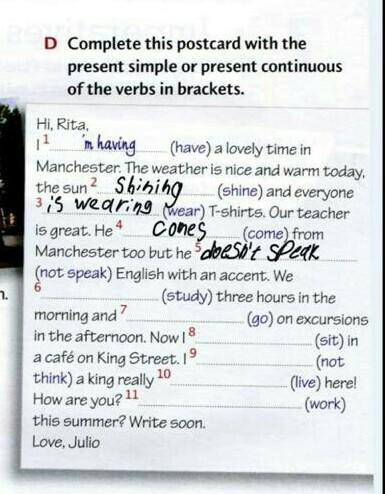 D Complete this postcard with the
present simple or present continuous
of the verbs in brackets.
Hi, Rita,
I 1 'm having (have) a lovely time in
Manchester. The weather is nice and warm today,
the sun 2 Shining (shine) and everyone
3 is wearing (wear) T-shirts. Our teacher
is great. He 4 Comes (come) from
Manchester too but he 5 doesn't speak
(not speak) English with an accent. We
6 (study) three hours in the
morning and 7 (go) on excursions
in the afternoon. Now I 8 (sit) in
a café on King Street. I 9 (not
think) a king really 10 (live) here!
How are you? 11 (work)
this summer? Write soon.
Love, Julio